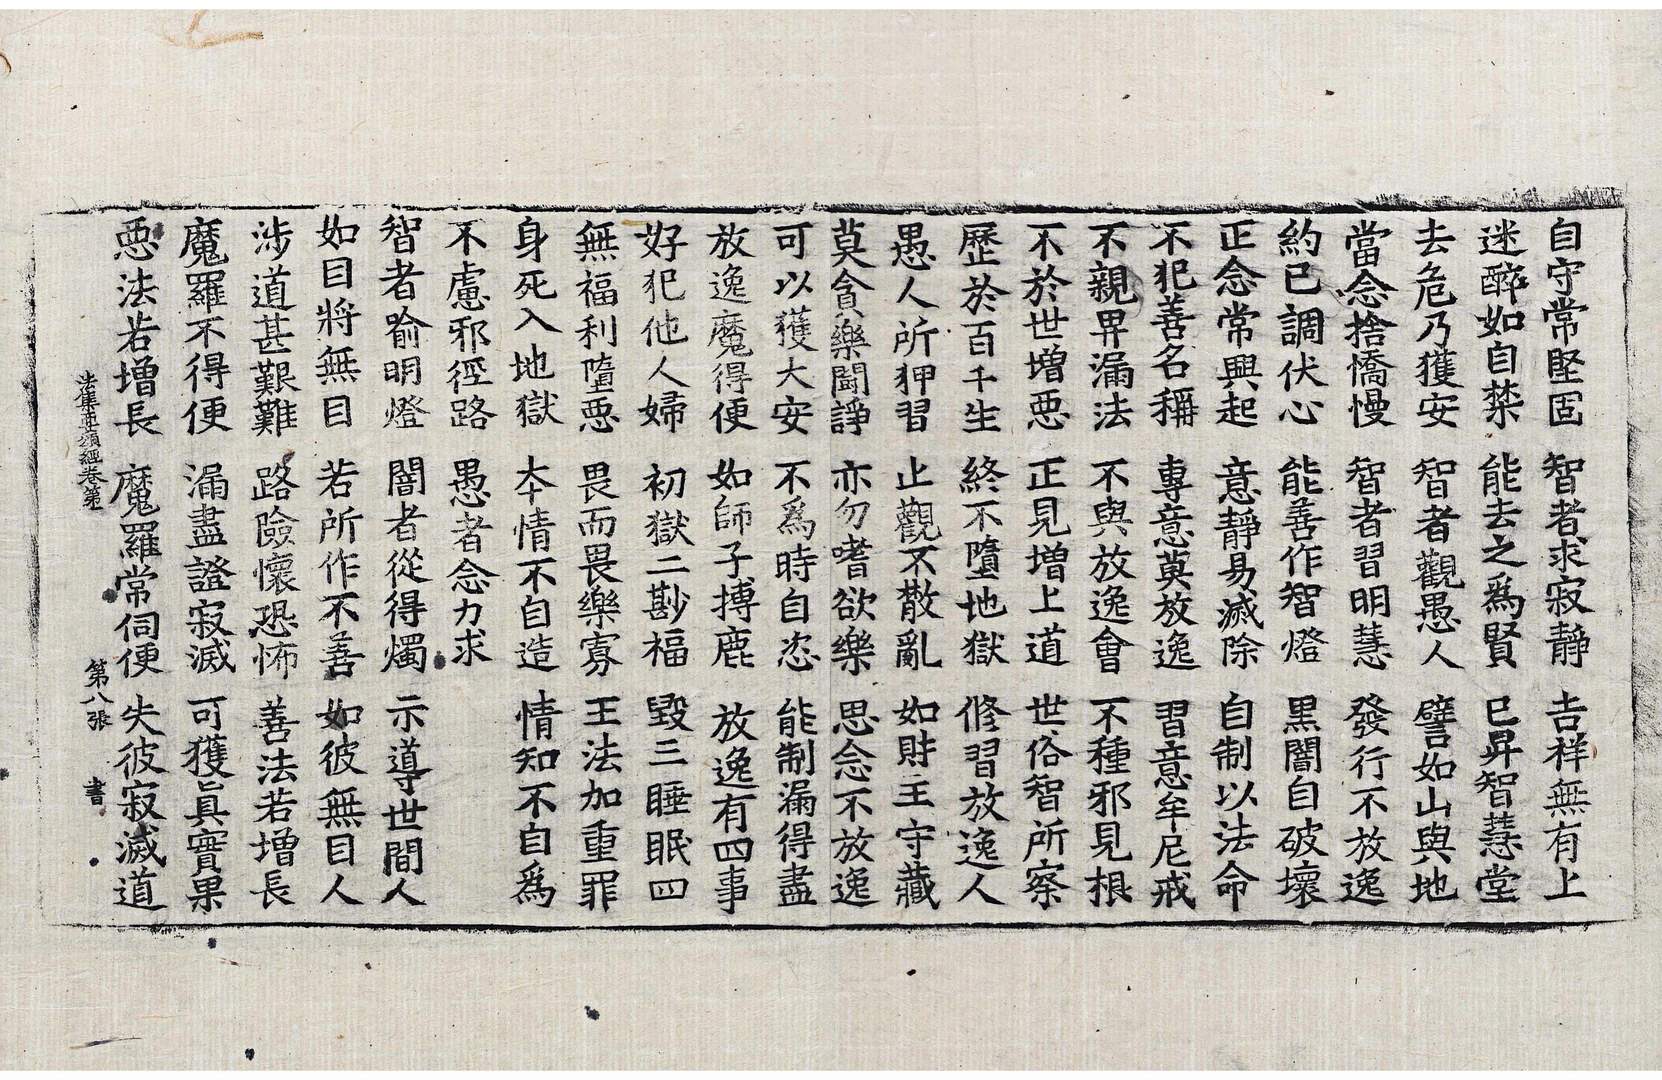 自守常堅固 智者求寂靜 吉祥無有上
迷醉如自禁 能去之爲賢 已昇智慧堂
去危乃獲安 智者觀愚人 譬如山與地
當念捨憍慢 智者習明慧 發行不放逸
約已調伏心 能善作智燈 黑闇自破壞
正念常興起 意靜易滅除 自制以法命
不犯善名稱 專意莫放逸 習意牟尼戒
不親卑漏法 不與放逸會 不種邪見根
不於世增惡 正見增上道 世俗智所察
歷於百千生 終不墮地獄 修習放逸人
愚人所狎習 止觀不散亂 如財主守藏
莫貪樂鬪諍 亦勿嗜欲樂 思念不放逸
可以獲大安 不爲時自恣 能制漏得盡
放逸魔得便 如師子搏鹿 放逸有四事
好犯他人婦 初獄二尠福 毀三睡眠四
無福利墮惡 畏而畏樂寡 王法加重罪
身死入地獄 本情不自造 情知不自爲
不慮邪徑路 愚者念力求
智者喻明燈 闇者從得燭 示導世間人
如目將無目 若所作不善 如彼無目人
涉道甚艱難 路險懷恐怖 善法若增長
魔羅不得便 漏盡證寂滅 可獲眞實果
惡法若增長 魔羅常伺便 失彼寂滅道
法集要頌經卷第 第八張 書